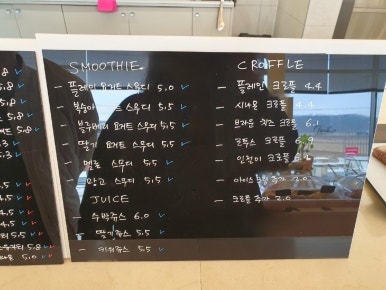 5.8
5.8
5.8
5.8
5.3
5.3
4.5
4.5
4.5
5.5
5.8
5.0
SMOOTHIE
- 플레인 요거트 스무디 5.0
- 복숭아 스무디 5.5
- 블루베리 요거트 스무디 5.5
- 딸기 요거트 스무디 5.5
- 멜론 스무디 5.5
- 망고 스무디 5.5
JUICE
- 수박쥬스 6.0
- 딸기쥬스 5.5
- 키위쥬스 5.5
CROFFLE
- 플레인 크로플 4.4
- 시나몬 크로플 4.4
- 브라운 치즈 크로플 6.1
- 로투스 크로플
- 인절미 크로플
- 아이스크림 추가 2.0
- 크로플 추가 2.0